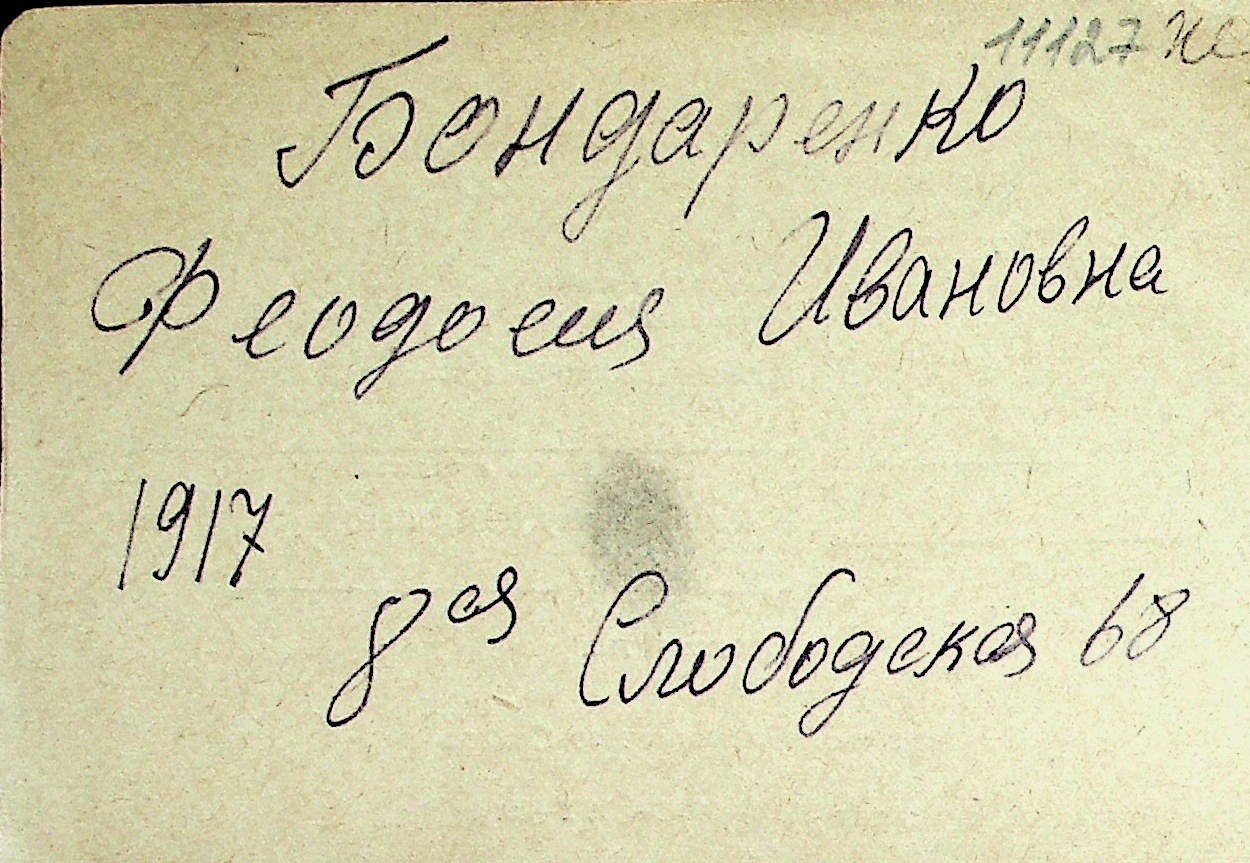 11127
Бондаренко
Феодосия Ивановна
1917
8ая Слободская 68